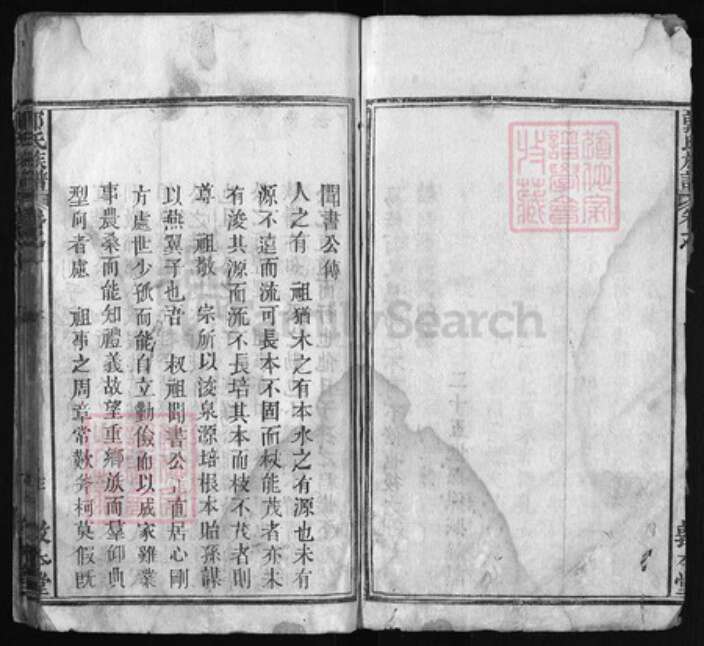 聞書公傳
人之有 祖猶木之有本水之有源也未有
源不遠而流可長本不固而枝能茂者亦未
有浚其源而流不長培其本而枝不茂者則
尊 祖敬 宗所以浚泉源培根本貽孫謀
以燕翼子也吾 叔祖聞書公 直居心剛
方處世少孤而能自立勤儉而以成家雖業
事農桑而能知禮義故望重鄉族而羣仰典
型向者慮 祖事之周章常歎斧柯莫假既
氏族譜
敦本堂
FamilySearch
二十五